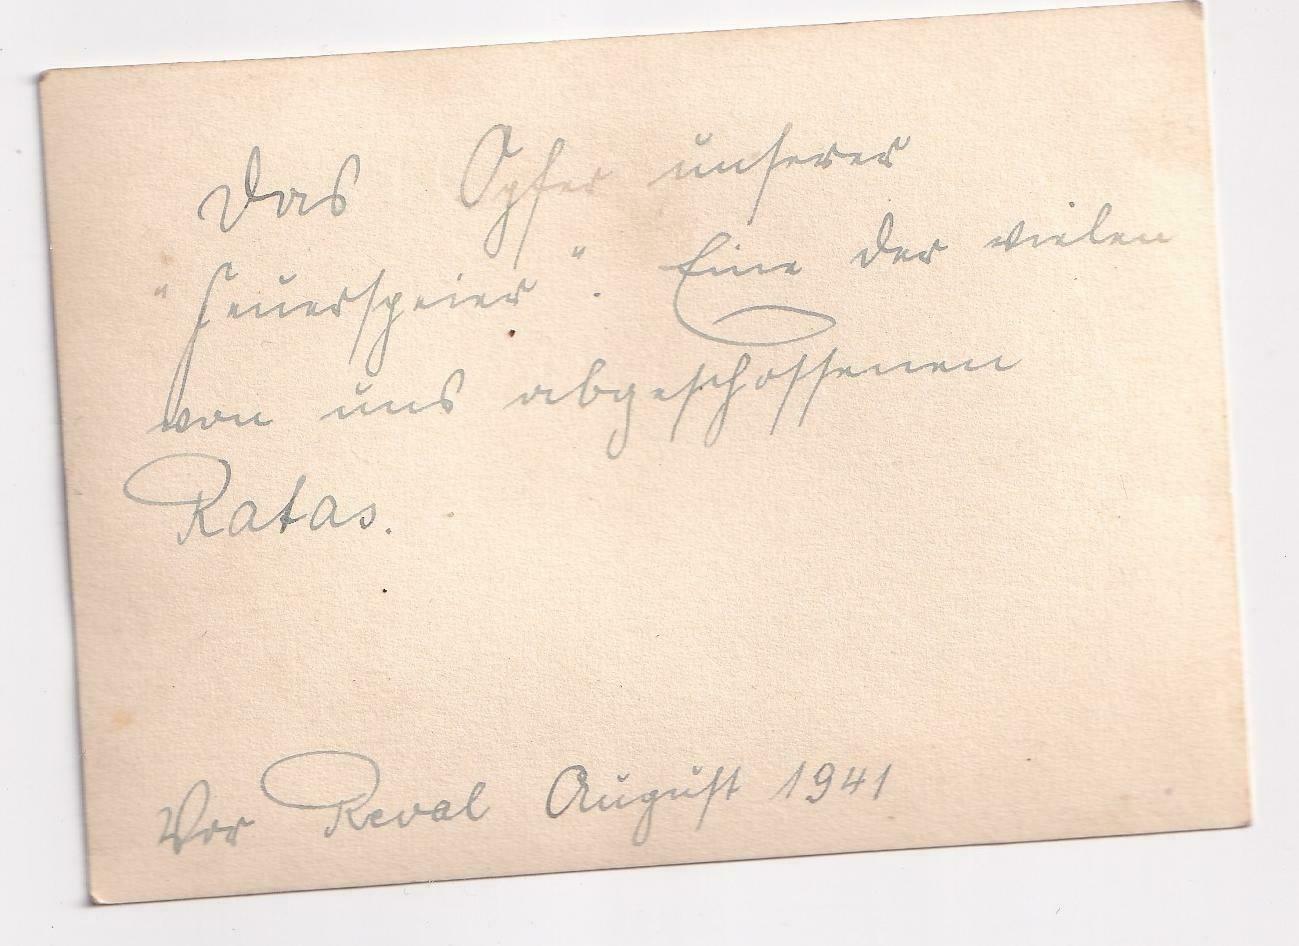 Das Opfer unserer
"Feuerspeier". Eine der vielen
von uns abgeschossenen
Ratas.
Vor Reval August 1941